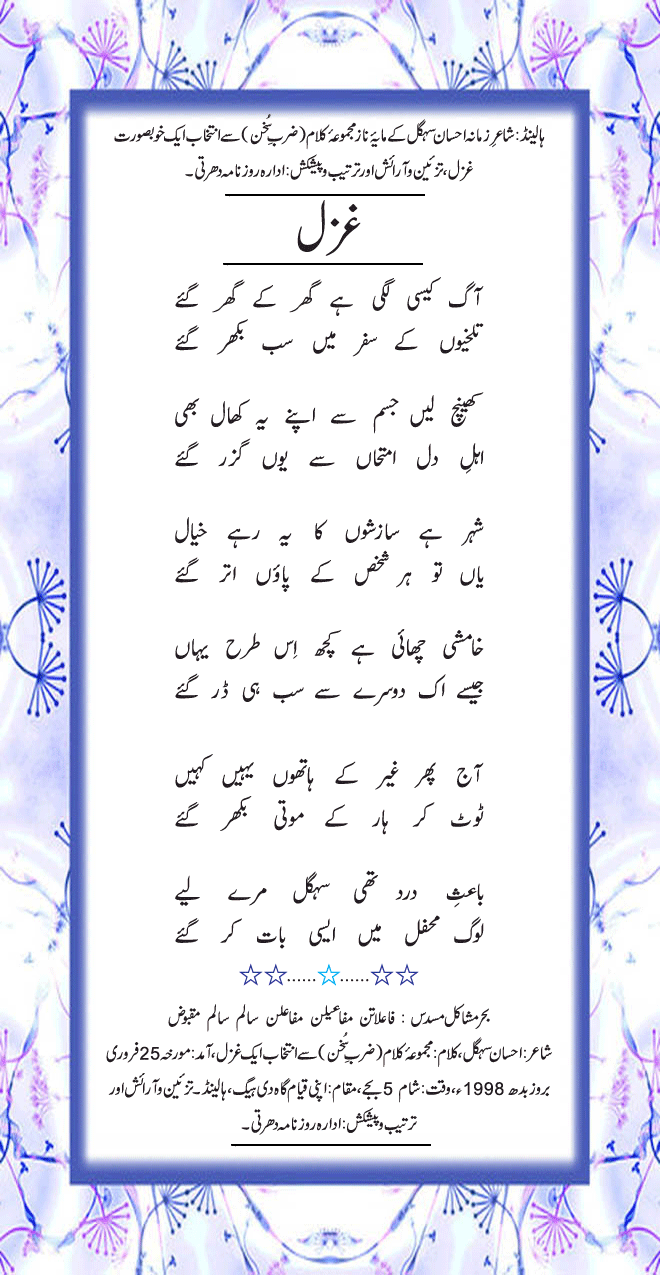 ہالینڈ: شاعرِ زمانہ احسان سہگل کے مایۂ ناز مجموعۂ کلام (ضربِ سُخن) سے انتخاب ایک خوبصورت
غزل، تزئین و آرائش اور ترتیب و پیشکش: ادارہ روزنامہ دھرتی۔
غزل
آگ کیسی لگی ہے گھر کے گھر گئے
تلخیوں کے سفر میں سب بکھر گئے
کھینچ لیں جسم سے اپنے یہ کھال بھی
اہلِ دل امتحاں سے یوں گزر گئے
شہر ہے سازشوں کا یہ رہے خیال
یاں تو ہر شخص کے پاؤں اتر گئے
خامشی چھائی ہے کچھ اِس طرح یہاں
جیسے اک دوسرے سے سب ہی ڈر گئے
آج پھر غیر کے ہاتھوں یہیں کہیں
ٹوٹ کر ہار کے موتی بکھر گئے
باعثِ درد تھی سہگل مرے لیے
لوگ محفل میں ایسی بات کر گئے
☆☆......☆......☆☆
بحر مشاکل مسدس : فاعلاتن مفاعیلن مفاعلن سالم سالم مقبوض
شاعر: احسان سہگل، کلام: مجموعۂ کلام (ضربِ سُخن) سے انتخاب ایک غزل، آمد: مورخہ 25 فروری
بروز بدھ 1998ء، وقت: شام 5 بجے، مقام: اپنی قیام گاہ دی ہیگ، ہالینڈ۔ تزئین و آرائش اور
ترتیب و پیشکش: ادارہ روزنامہ دھرتی۔